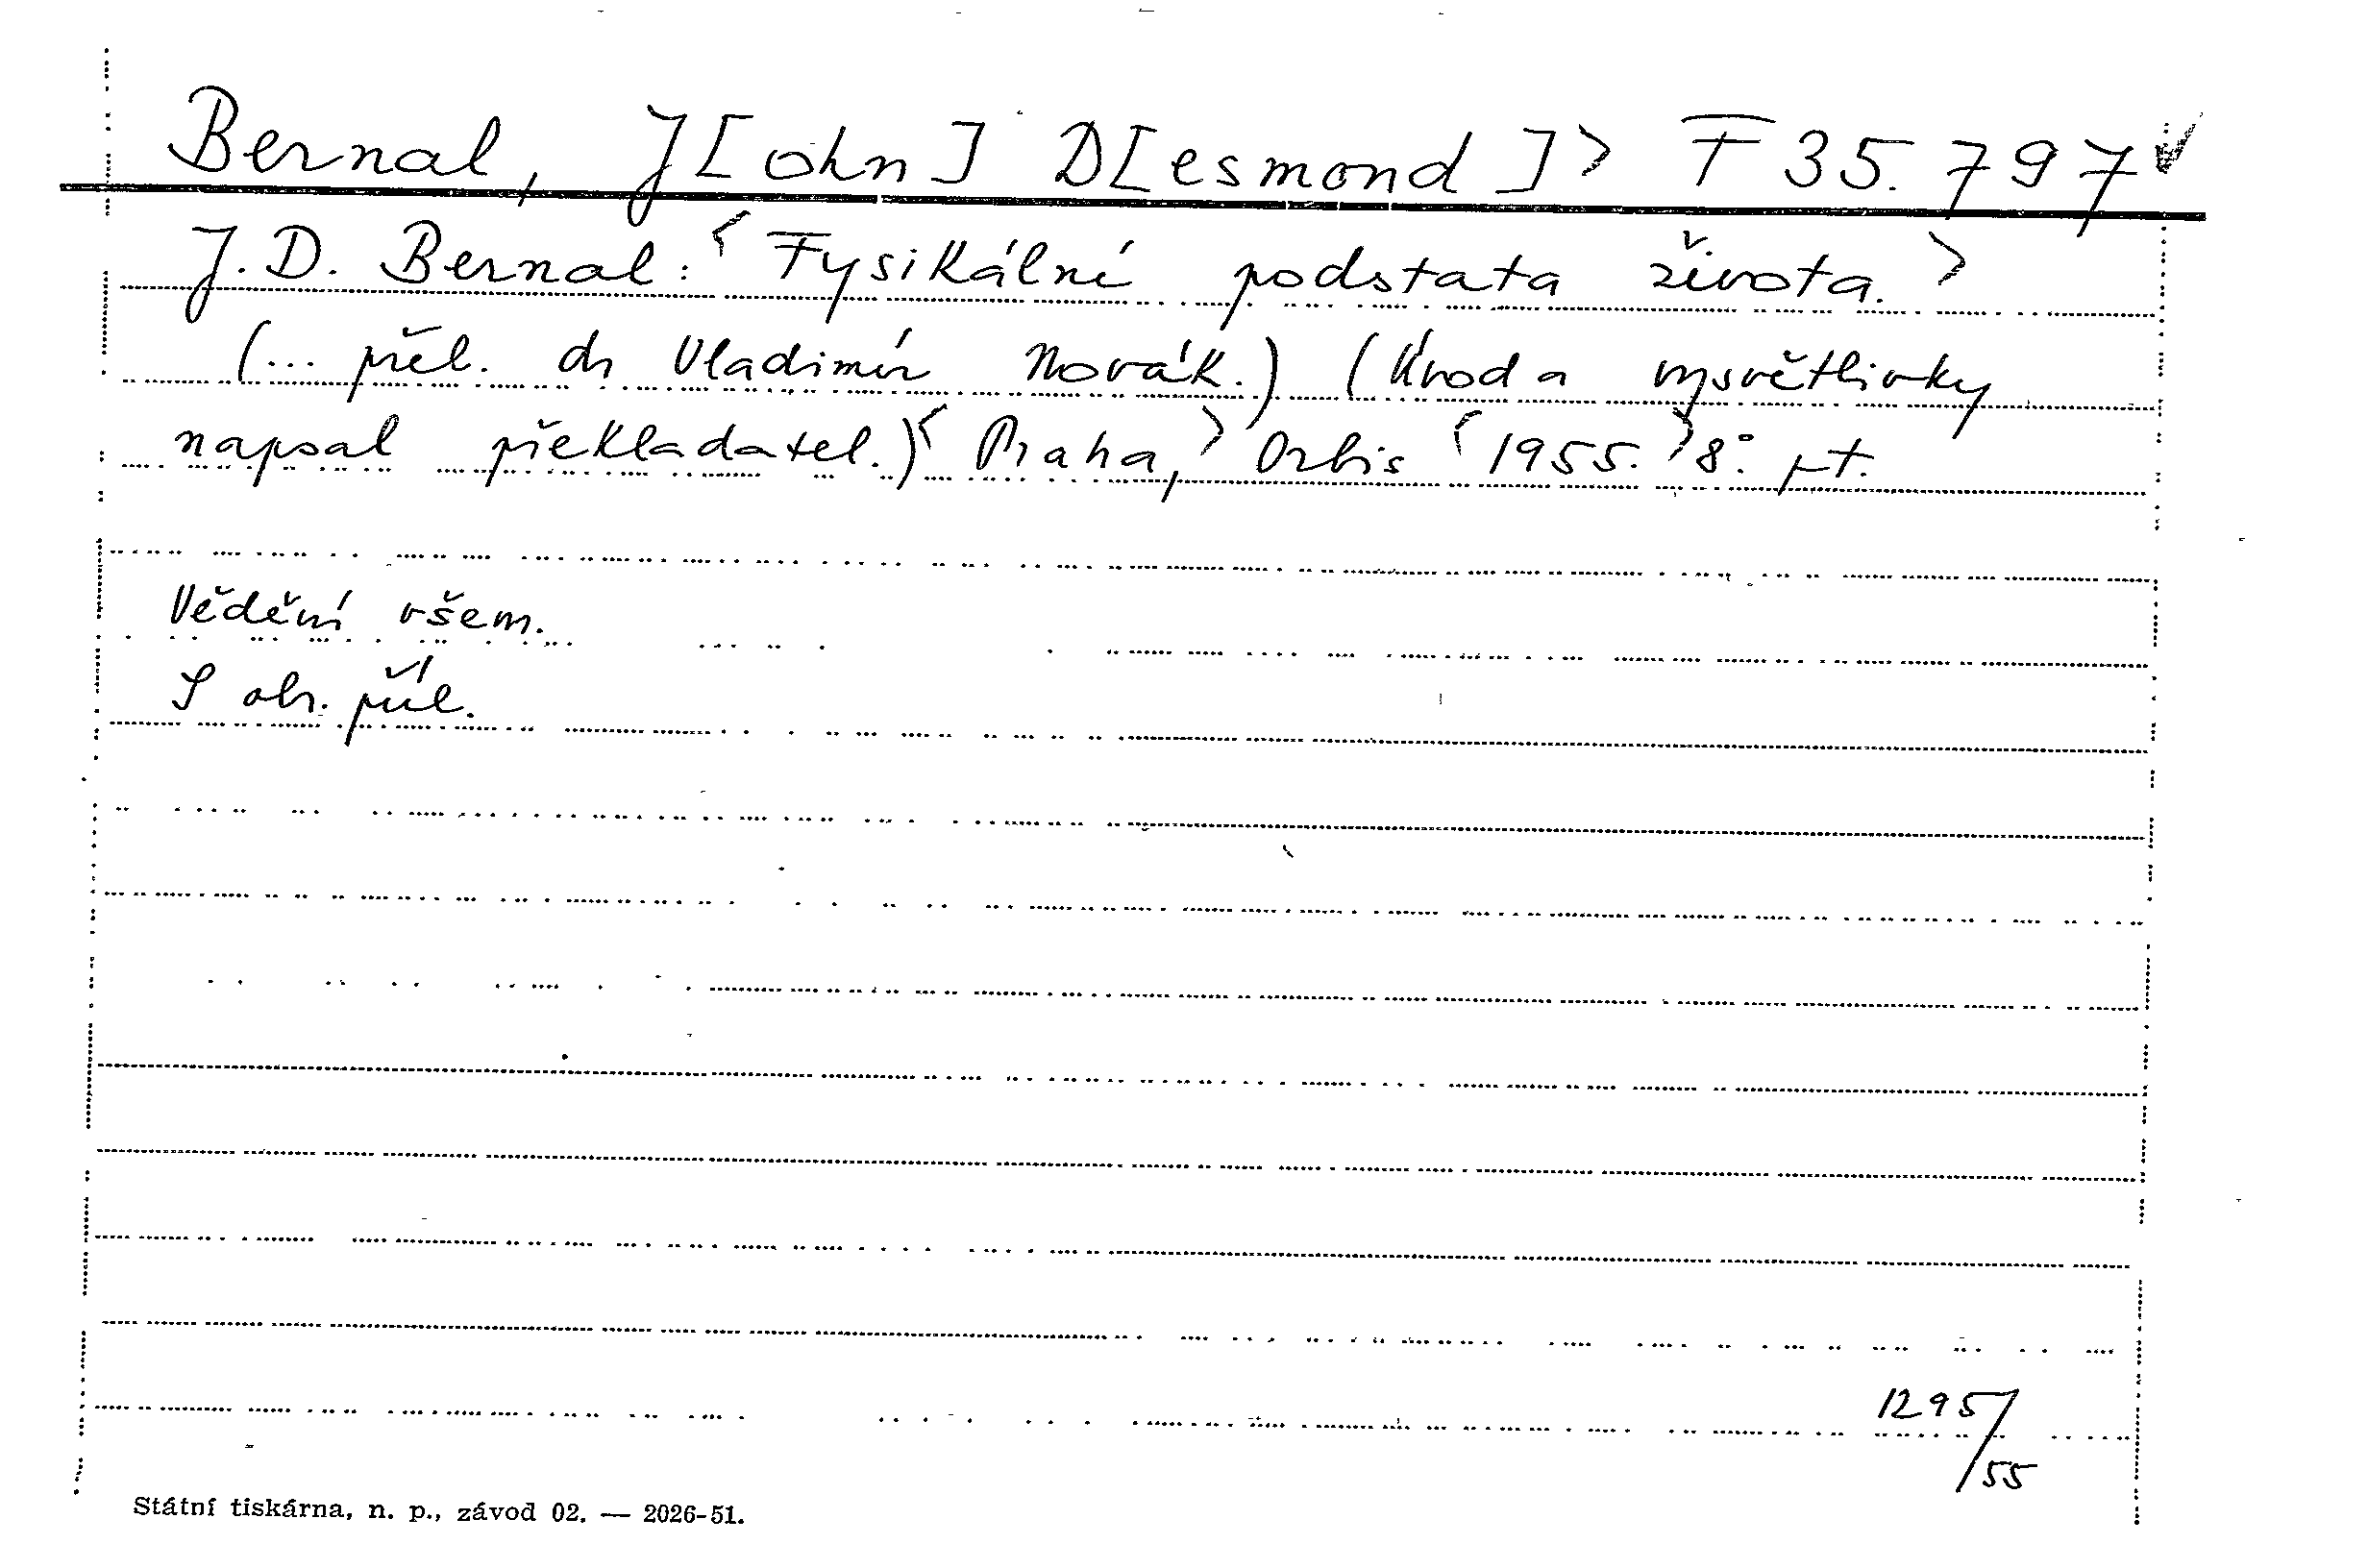 Bernal, J[ohn] D[esmond]> F 35.797
J. D. Bernal: <Fysikální podstata života.>
(... přel. dr Vladimír Novák.) (Úvod a vysvětlivky
napsal překladatel.) <Praha,> Orbis <1955.> 8°. pt.
Vědění všem.
S obr. příl.
1295/55
Státní tiskárna, n. p., závod 02. — 2026-51.